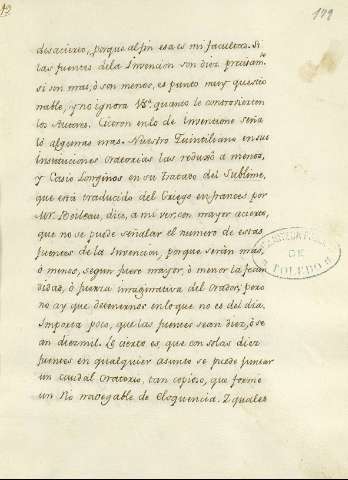 199
desacierto, porque al fin esa es mi facultad. Si
las fuentes de la Invencion son diez precisam.te
si son mas, ò son menos, es punto muy questio
nable, y no ignora Vs.ª quanto lo controvierten
los Autores. Ciceron en lo de Inventione seña
lò algunas mas. Nuestro Quintiliano en sus
Instituciones Oratorias las reduxo a menos,
y Casio Longinos en su Tratado del Sublime,
que està traducido del Griego en frances por
Mr. Boileau, dice, a mi ver, con mayor acierto,
que no se puede señalar el numero de estas
fuentes de la Invencion, porque seràn mas,
ò menos, segun fuere mayor, ò menor la fecun
didad, ò fuerza imaginativa del Orador; pero
no ay que detenernos en lo que no es del dia.
Importa poco, que las fuentes sean diez, ò se
an diez mil. Lo cierto es que con solas diez
fuentes en qualquier asunto se puede juntar
un caudal Oratorio, tan copioso, que forme
un Rio navegable de Eloquencia. I quales
DE
TOLEDO